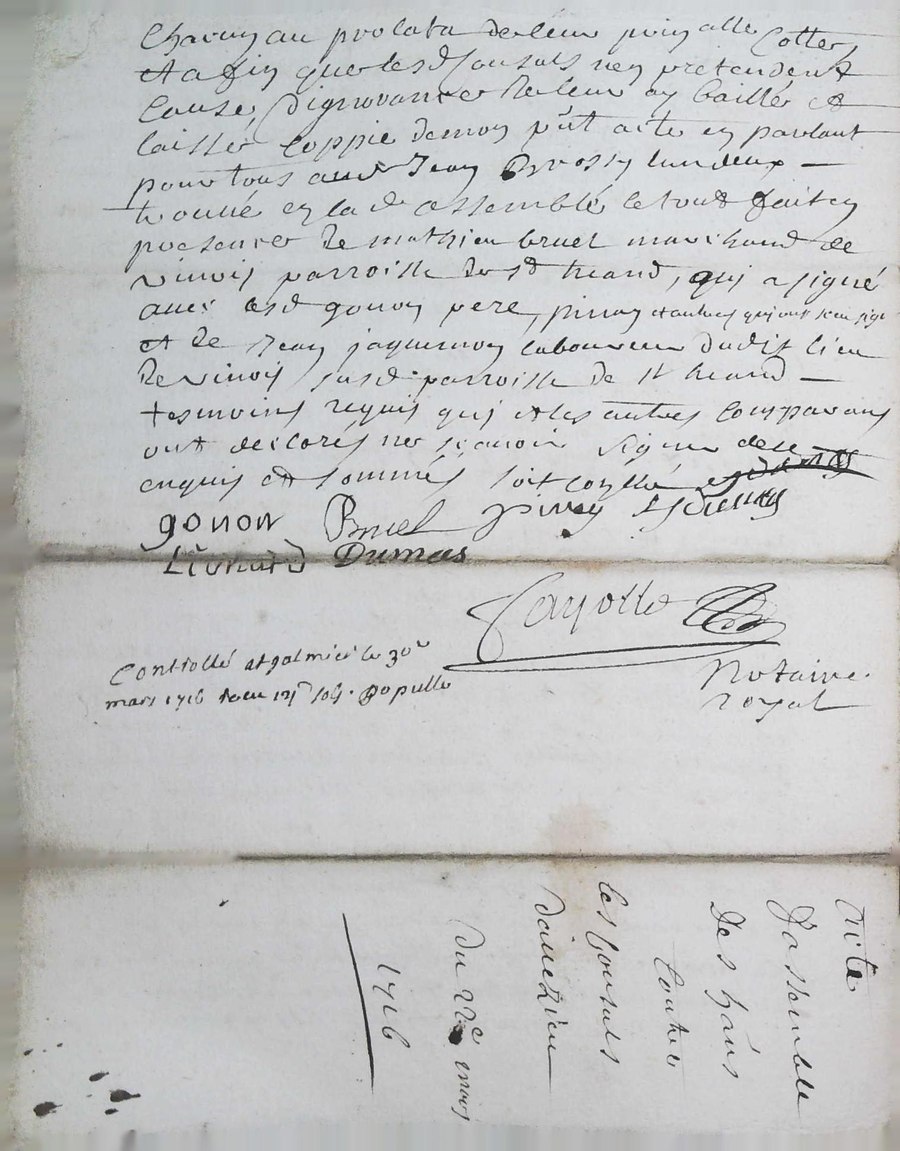 chacun au prolata de leur prin alle Cottes
et a fin que lesd Consuls nen pretendent
Cause Dignorance Je leur ay baillé et
laissé Coppie de mon pnt acte en parlant
pour tous aud Jean Brossy lun deux
trouvé en lad assemblé le tout fait en
presence de mathieu bruel marchand de
vinois parroisse de st heand, qui a signé
avec lesd gonon pere, pinay et autres qui ont sceu sign
et de Jean jaquemon laboureur dudit lieu
de vinois susd parroisse de st heand
tesmoins requis qui et les autres comparans
ont declarés ne scavoir signer de ce
enquis et sommés soit conllé
gonon Bruel pinay
Lionard Dumas
Cayolle
Notaire
royal
Controllé a st galmier le 30e
mars 1716 receu Populle
Acte
Dassemble
Des hans
Contre
les Consuls
Davezieu
Du 22e mars
1716